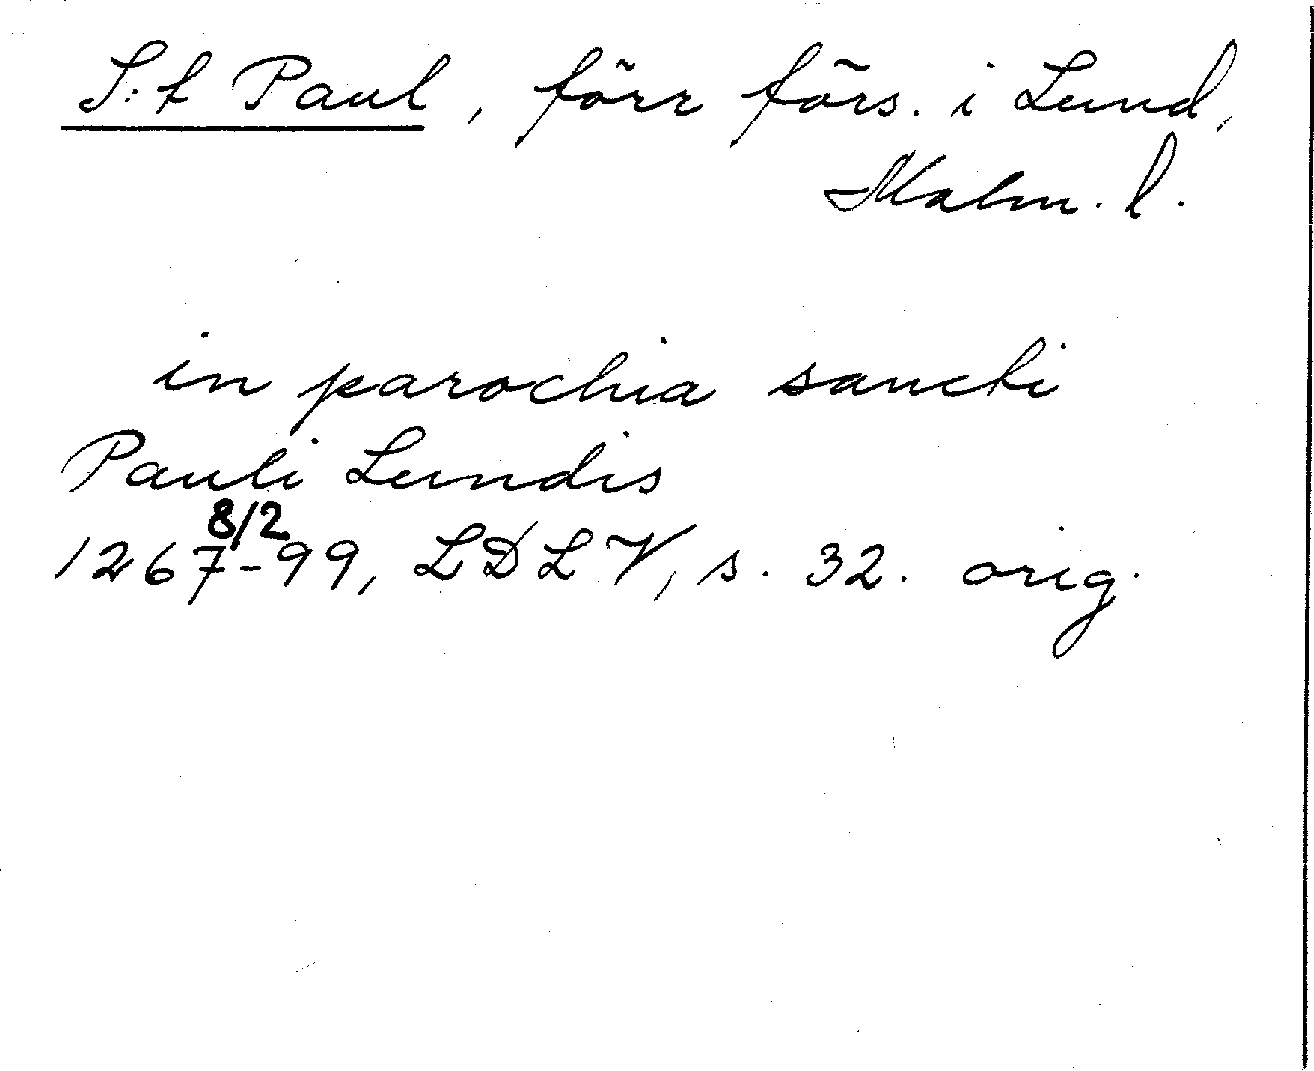 S:t Paul, förr förs. i Lund,
Malm. l.
in parochia sancti
Pauli Lundis
8/2
1267-99, LDLV, s. 32. orig.